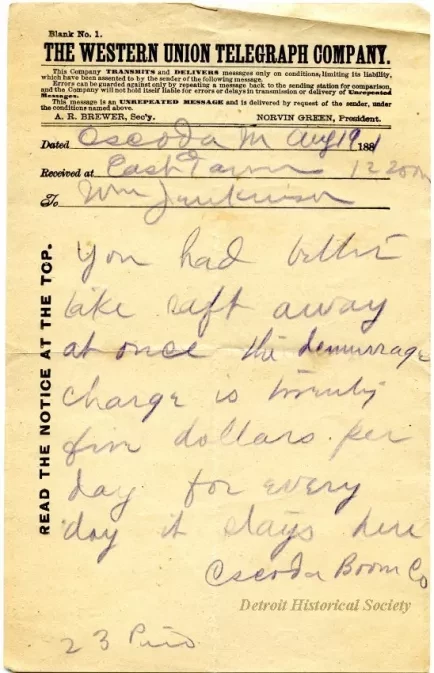 Blank No. 1.
THE WESTERN UNION TELEGRAPH COMPANY.
This Company TRANSMITS and DELIVERS messages only on conditions, limiting its liability,
which have been assented to by the sender of the following message.
Errors can be guarded against only by repeating a message back to the sending station for comparison,
and the Company will not hold itself liable for errors or delays in transmission or delivery of Unrepeated
Messages.
This message is an UNREPEATED MESSAGE and is delivered by request of the sender, under
the conditions named above.
A. R. BREWER, Sec'y. NORVIN GREEN, President.
Dated Oscoda M Aug 19 1881
Received at East Tawas 12 20
To Wm Jenkinson
READ THE NOTICE AT THE TOP.
You had better
take raft away
at once the demurrage
charge is twenty
five dollars per
day for every
day it stays here
Oscoda Boom Co
Detroit Historical Society
23